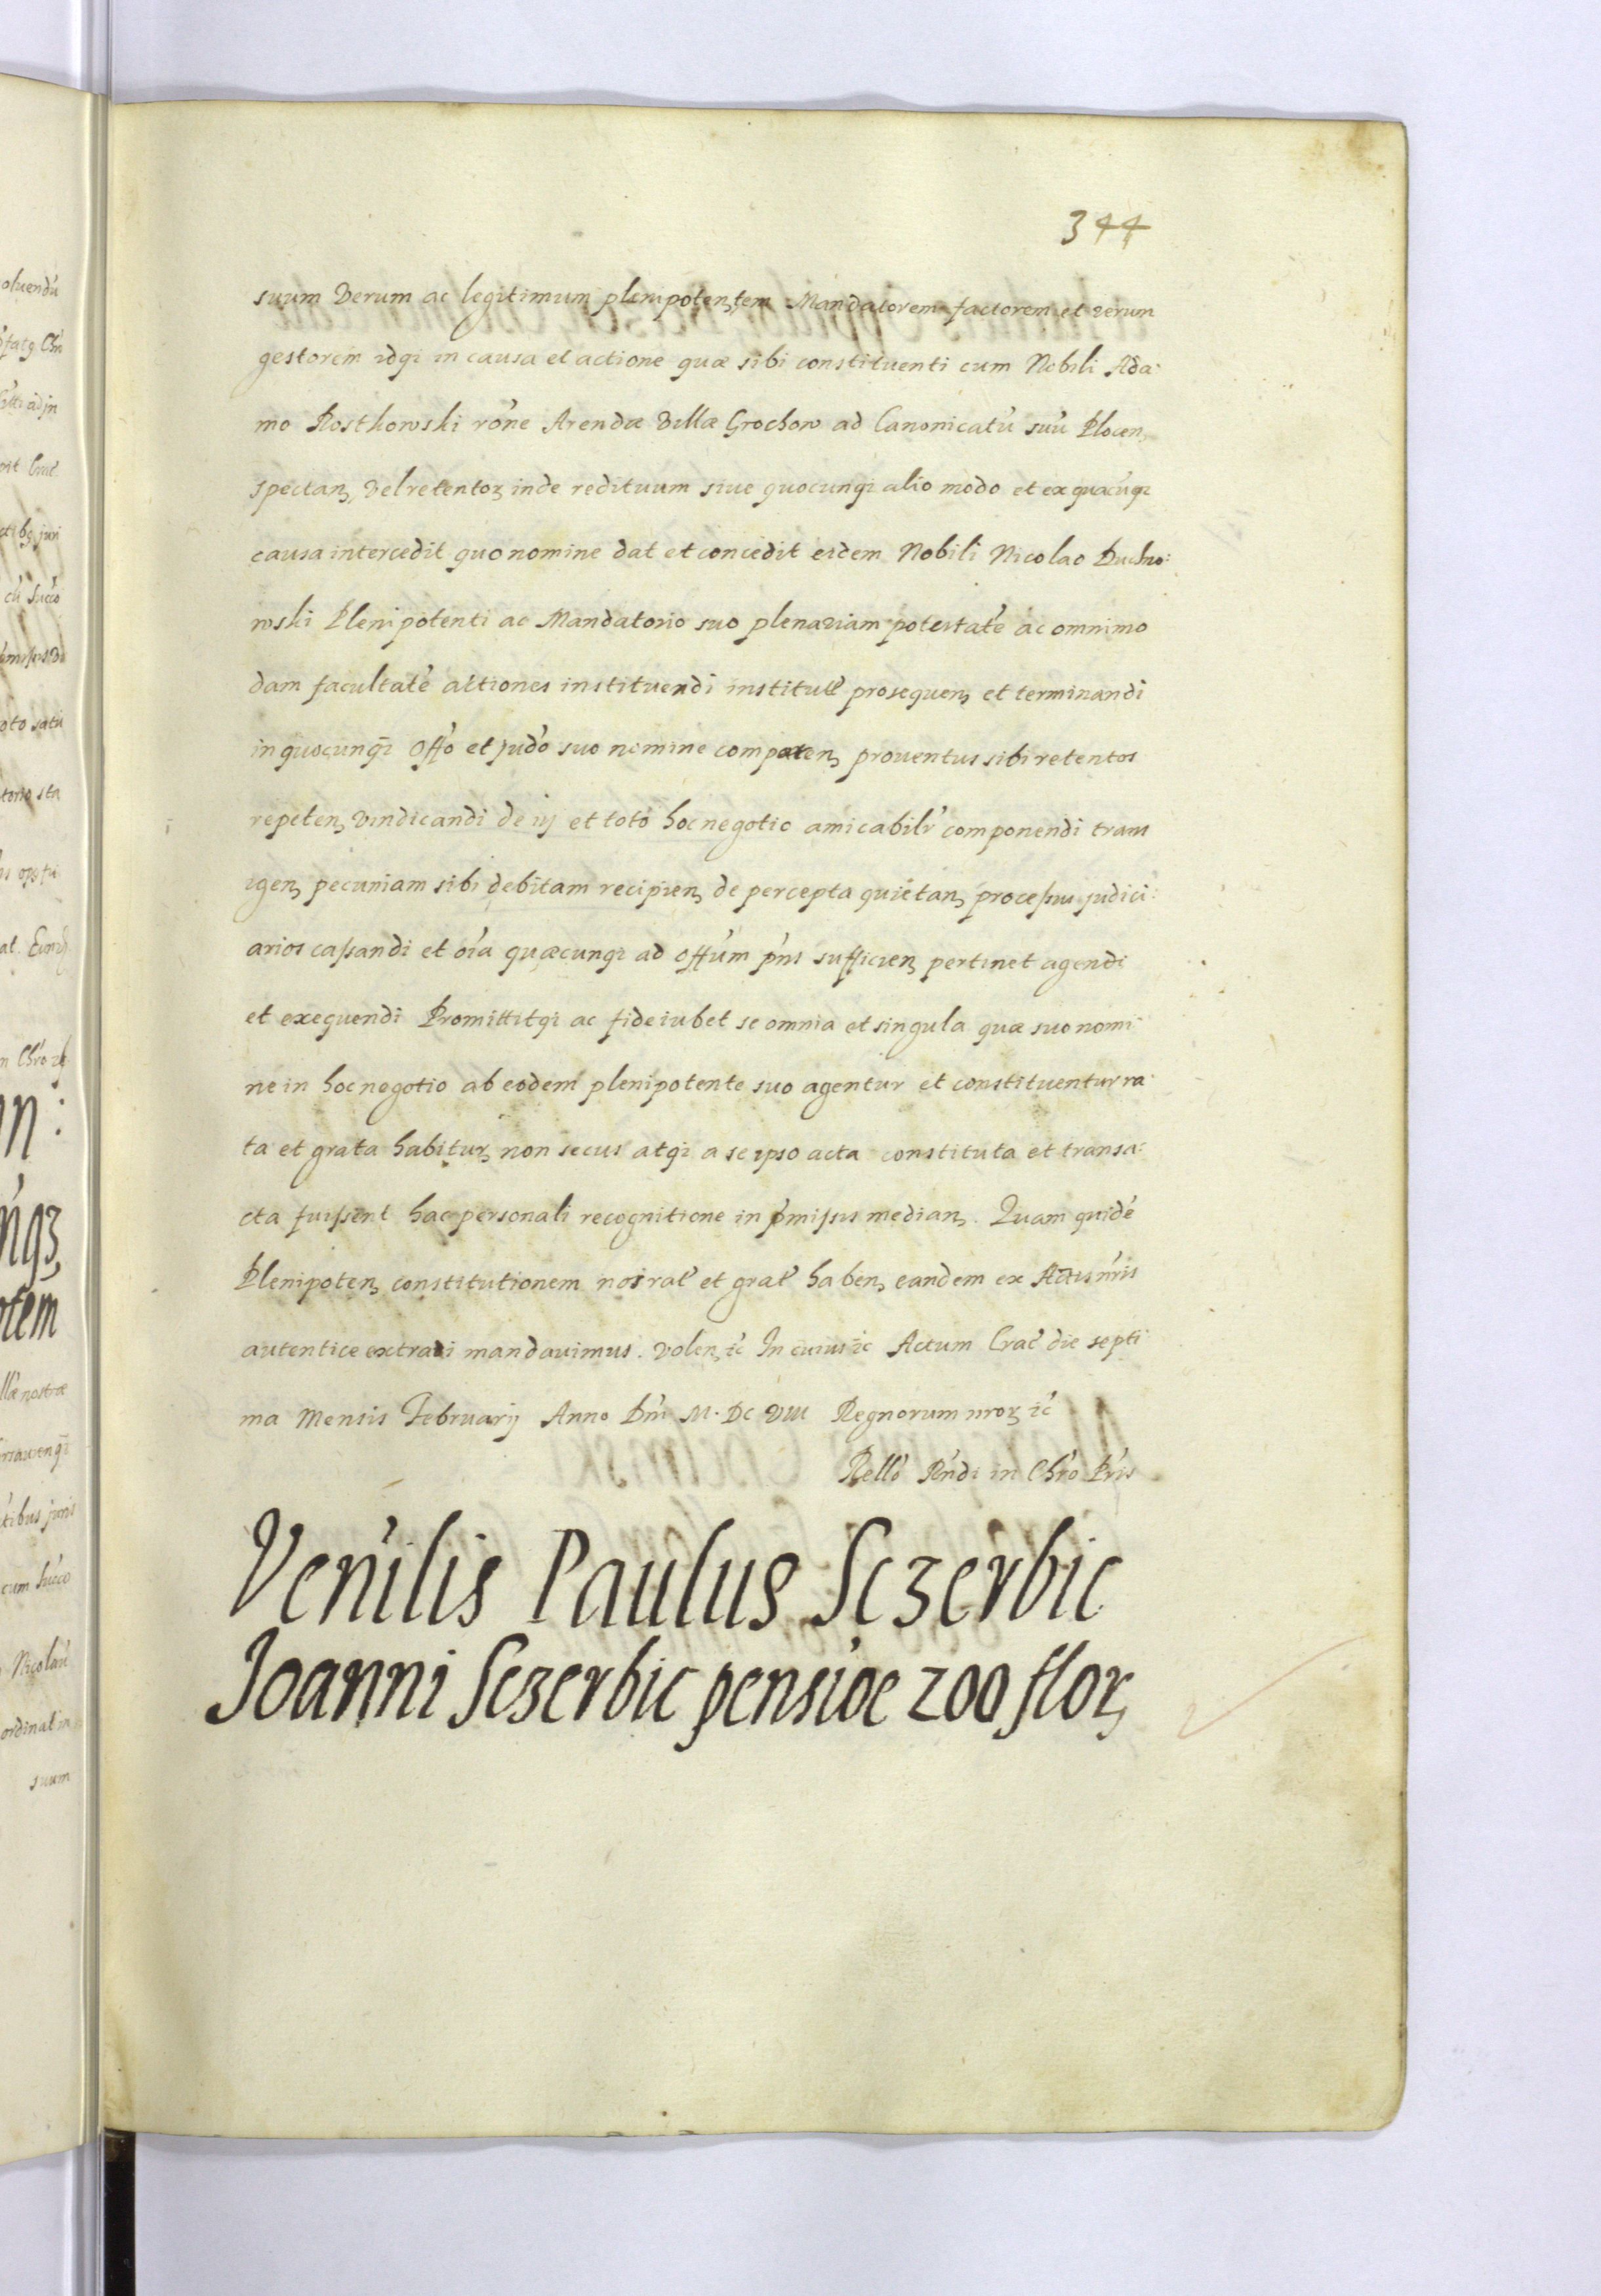 344
suum verum ac legitimum plenipotenꝫtem Mandatorem factorem et rerum
gestorem idqꝫ in causa et actione quæ sibi constituenti cum Nobili Ada:
mo Rostkowski rōne Arendæ villæ Grochow ad Canonicatū suū Plocenꝫ
spectanꝫ, vel retentoꝝ inde redituum siue quocunqꝫ alio modo et ex quacūqꝫ
causa intercedit quo nomine dat et concedit eidem Nobili Nicolao Duchno:
wski Plenipotenti ac Mandatorio suo plenariam potestatē ac omnimo
dam facultatē actiones instituendi institut̄ prosequenꝫ et terminandi
in quocunqꝫ Offō et Judō suo nomine comparenꝫ prouentus sibi retentos
repetenꝫ vindicandi de iisꝫ et toto hoc negotio amicabilr̄ componendi trans
igenꝫ pecuniam sibi debitam recipienꝫ de percepta quietanꝫ processus judici:
arios cassandi et oīa quæcunqꝫ ad Offūm pn̄s sufficienꝫ pertinet agendi
et exequendi Promittitqꝫ ac fideiubet se omnia et singula quæ suo nomi
ne in hoc negotio ab eodem plenipotente suo agentur et constituentur ra:
ta et grata habiturꝫ non secus atqꝫ a se ipso acta constituta et transa:
cta fuissent hac personali recognitione in pm̄issis medianꝫ. Quam quidē
Plenipotenꝫ constitutionem nos rat̄ et grat̄ habenꝫ eandem ex Actis nr̄is
autentice extradi mandauimus. Volenꝫ ꝛc̄ In cuius ꝛc Actum Crac̄ die septi
ma Mensis Februarij Anno Dn̄i M. DC VIII Regnorum nroꝝ ꝛc̄
Rellō Rn̄di in Chrō Pr̄is
Ven̄ilis Paulus Sczerbic
Joanni Sczerbic pensiōe 200 floꝝ